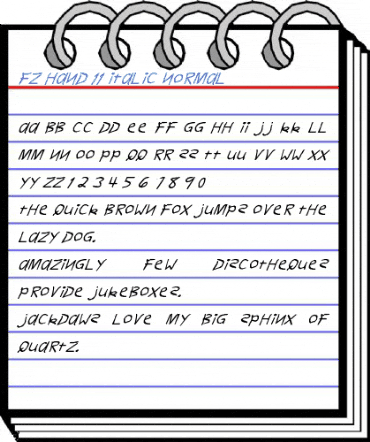 FZ HAND 11 ITALIC NORMAL
aa BB CC DD ee FF GG HH ii jj kk LL
MM nn oo pp QQ RR ss tt uu VV WW XX
YY ZZ 1 2 3 4 5 6 7 8 9 0
tHe QuicK BROWn FOX juMps OVeR tHe
LaZY DOG.
aMaZinGLY FeW DiscotHeQues
pROViDe jukeBoxes.
jackDaWs LOVe MY BiG spHinX OF
QuaRtZ.